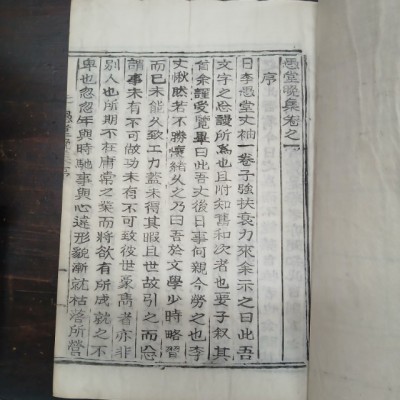 愚堂晩集卷之一
序
日李愚堂丈袖一卷子強扶衰力來余示之曰此吾
文字之忝謾所為也且附知舊和次者也要子叙其
首余謹受覽畢曰此吾丈後日事何親今勞之也李
丈愀然若不勝懷緒久之乃曰吾於文學少時略習
而已未能久致工力蓋未得其暇且世故引之而然
諸事未有不可做功未有不可致役世氣
別人也所期不在庸常之業而將欲有所成就之不
卑也忽忽年與時馳事與心違形貌漸就枯落所營